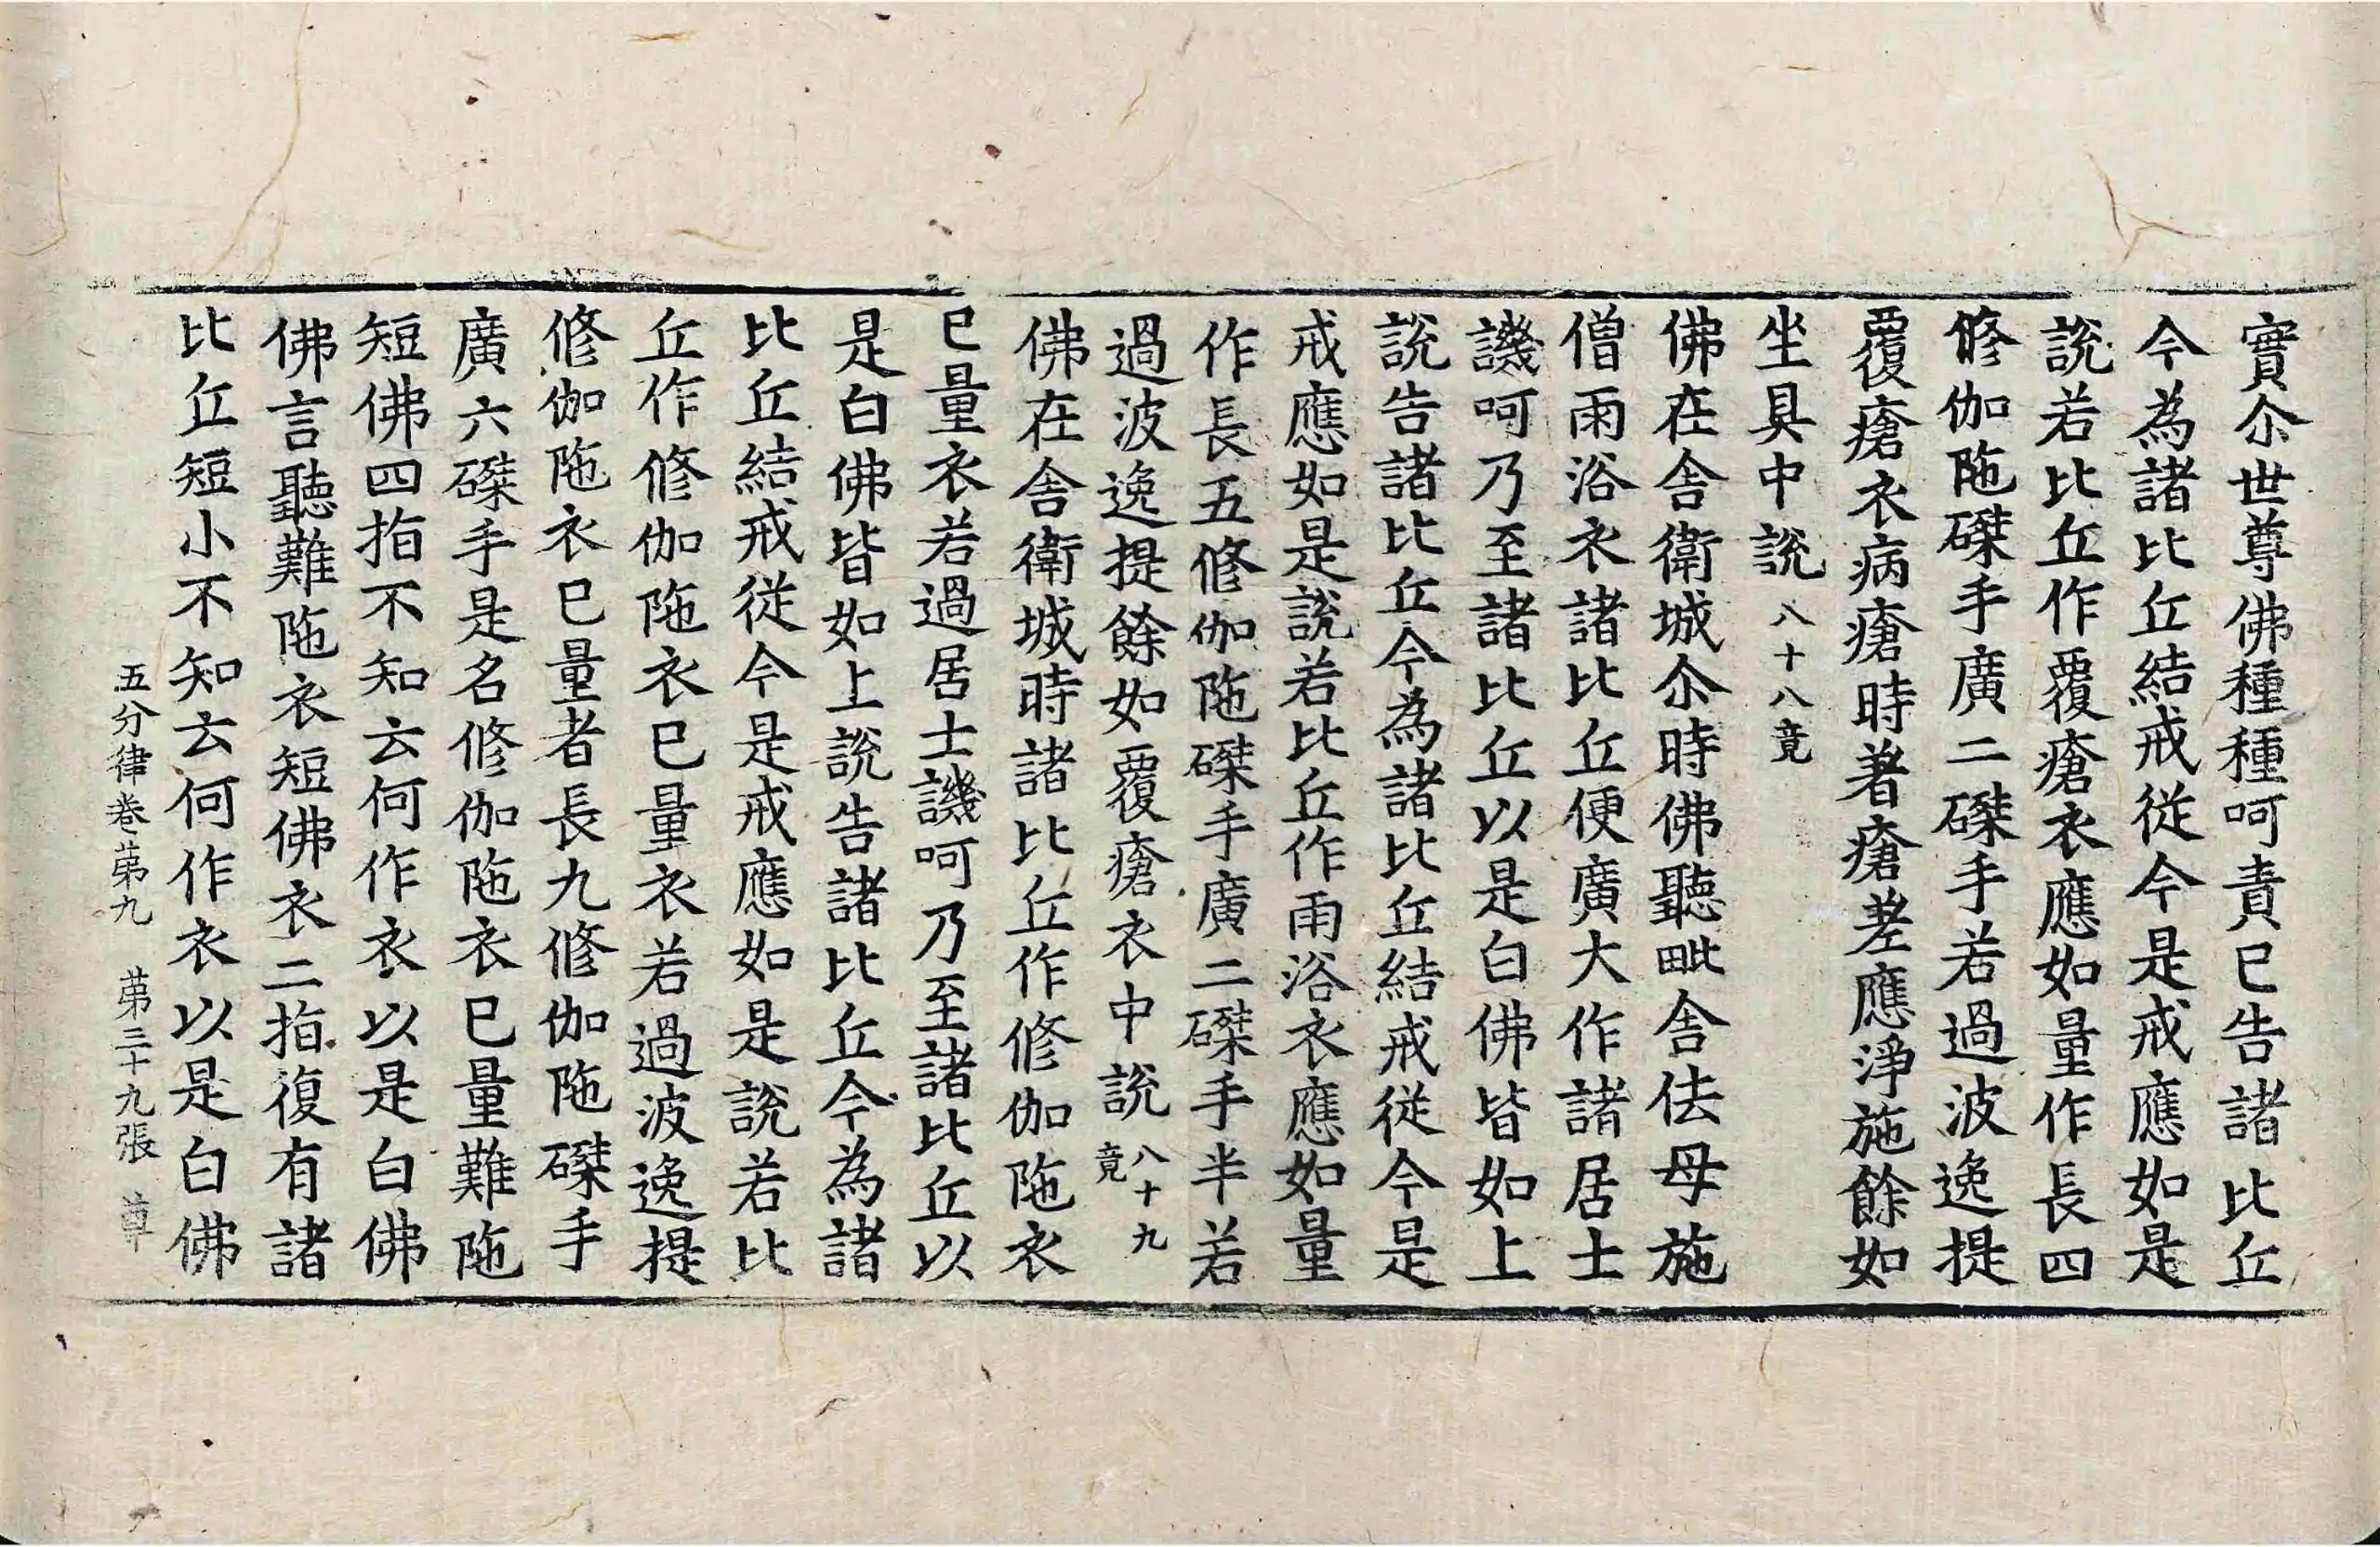 實尒世尊佛種種呵責已告諸比丘
今為諸比丘結戒従今是戒應如是
說若比丘作覆瘡衣應如量作長四
修伽陁磔手廣二磔手若過波逸提
覆瘡衣病瘡時著瘡差應淨施餘如
坐具中說八十八竟
佛在舍衛城尒時佛聽毗舍佉母施
僧雨浴衣諸比丘便廣大作諸居士
譏呵乃至諸比丘以是白佛皆如上
說告諸比丘今為諸比丘結戒従今是
戒應如是說若比丘作雨浴衣應如量
作長五修伽陁磔手廣二磔手半若
過波逸提餘如覆瘡衣中說八十九竟
佛在舍衛城時諸比丘作修伽陁衣
已量衣若過居士譏呵乃至諸比丘以
是白佛皆如上說告諸比丘今為諸
比丘結戒従今是戒應如是說若比
丘作修伽陁衣已量衣若過波逸提
修伽陁衣已量者長九修伽陁磔手
廣六磔手是名修伽陁衣已量難陁
短佛四指不知云何作衣以是白佛
佛言聽難陁衣短佛衣二指復有諸
比丘短小不知云何作衣以是白佛
五分律卷第九 第三十九張